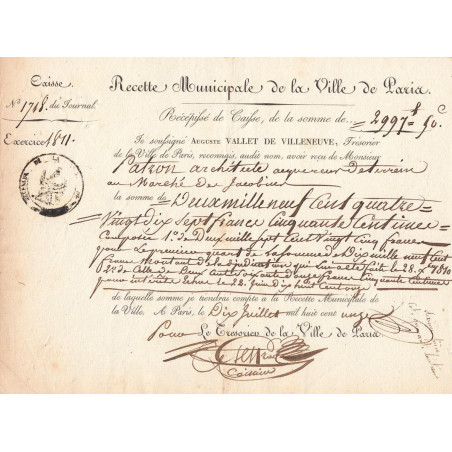 Caisse.
N.º 1718. du Journal.
Exercice 1811.
Recette Municipale de la Ville de Paris.
Récépissé de Caisse, de la somme de 2997 f 50 c
Je soussigné AUGUSTE VALLET DE VILLENEUVE, Trésorier
de la Ville de Paris, reconnais, audit nom, avoir reçu de Monsieur
architecte acquereur de terrein
au Marché des Jacobins
la somme de Deux mille neuf cent quatre
Vingt dix sept francs cinquante centimes
Composée 1º de Deux mille sept cent vingt cinq francs
pour le premier quart de la somme de Dix mille neuf cent
francs montant de l'adjudication qui lui a été fait le 28. 1810
2º de celle de Deux cent soixante douze francs cinquante centimes
pour intérêts échus le 28 Juin dix huit cent onze
de laquelle somme je tiendrai compte à la Recette Municipale de
la Ville. A Paris, le Dix Juillet mil huit cent onze
Pour Le Trésorier de la Ville de Paris
Caissier